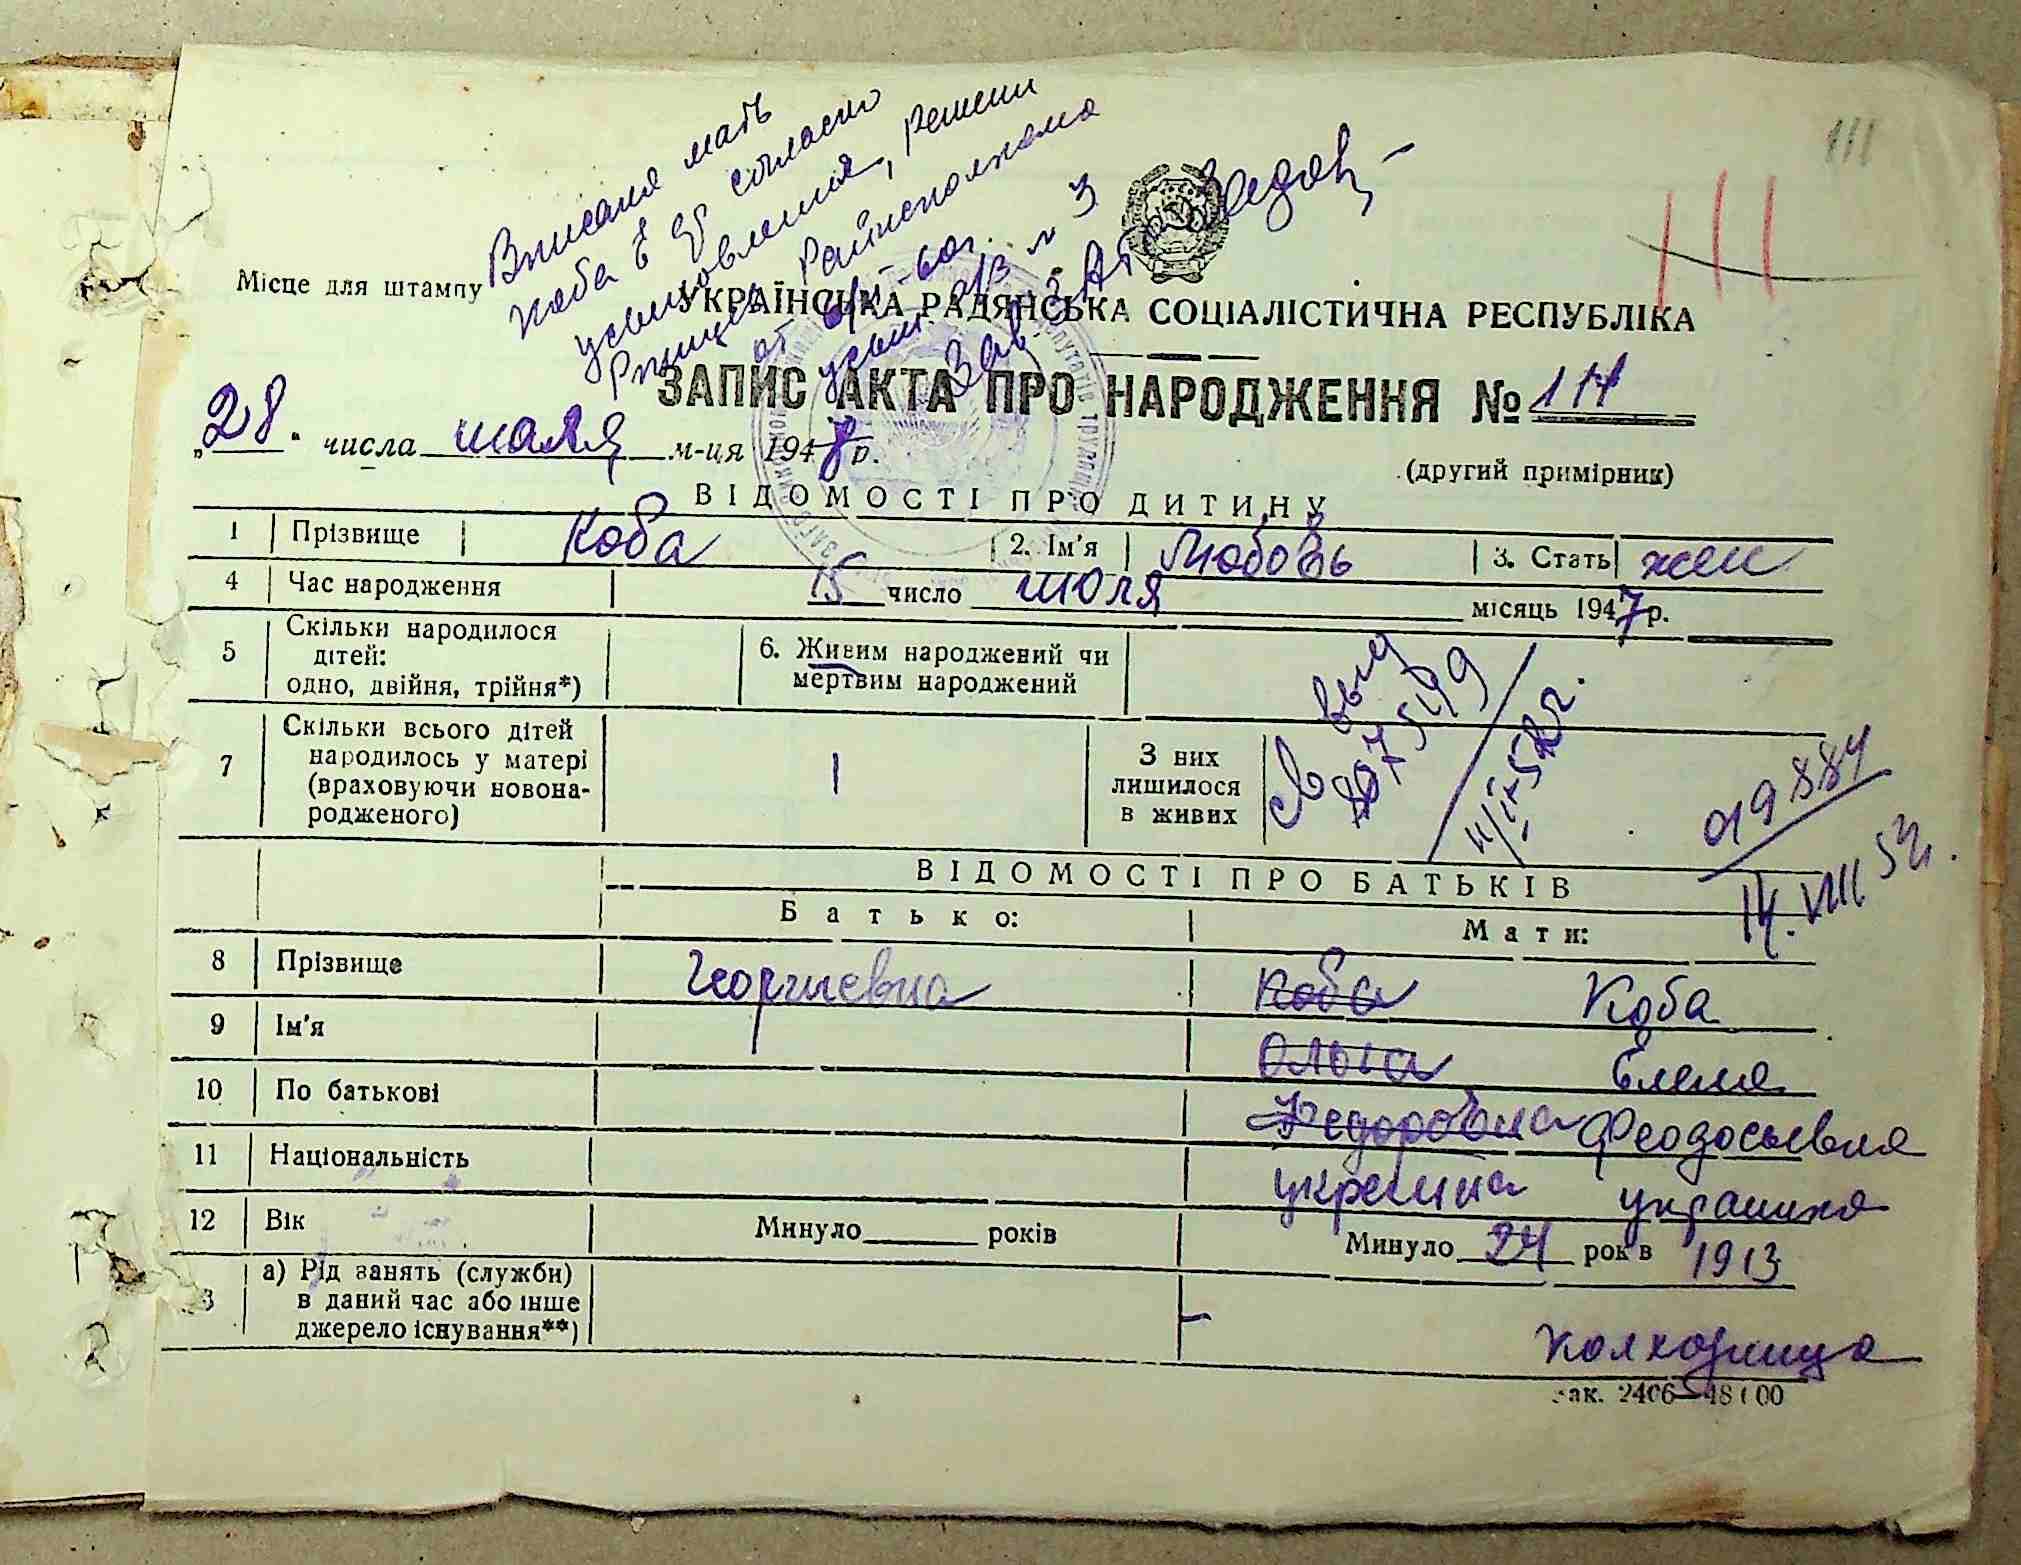 111
111
Вписана мать
Коба Е. Ф. согласно
усыновления, решени
Райисполкома
от
усын. № 3
Зав.
Місце для штампу
УКРАЇНСЬКА РАДЯНСЬКА СОЦІАЛІСТИЧНА РЕСПУБЛІКА
ЗАПИС АКТА ПРО НАРОДЖЕННЯ №
„28“ числа июля м-ця 194 р.
(другий примірник)
ВІДОМОСТІ ПРО ДИТИНУ
1 Прізвище Коба 2. Ім'я Любовь 3. Стать жен
4 Час народження 15 число июля місяць 1947 р.
5 Скільки народилося дітей: одно, двійня, трійня*) 6. Живим народжений чи мертвим народжений
7 Скільки всього дітей народилось у матері (враховуючи новонародженого) 1 З них лишилося в живих
Св выд
019884
14.VIII
ВІДОМОСТІ ПРО БАТЬКІВ
Батько: Мати:
8 Прізвище Георгиевна Коба Коба
9 Ім'я Ольга Елена
10 По батькові Федоровна Феодосьевна
11 Національність украинка
12 Вік Минуло років Минуло 24 рок в 1913
а) Рід занять (служби) в даний час або інше джерело існування**) колхозница
ак. 2406